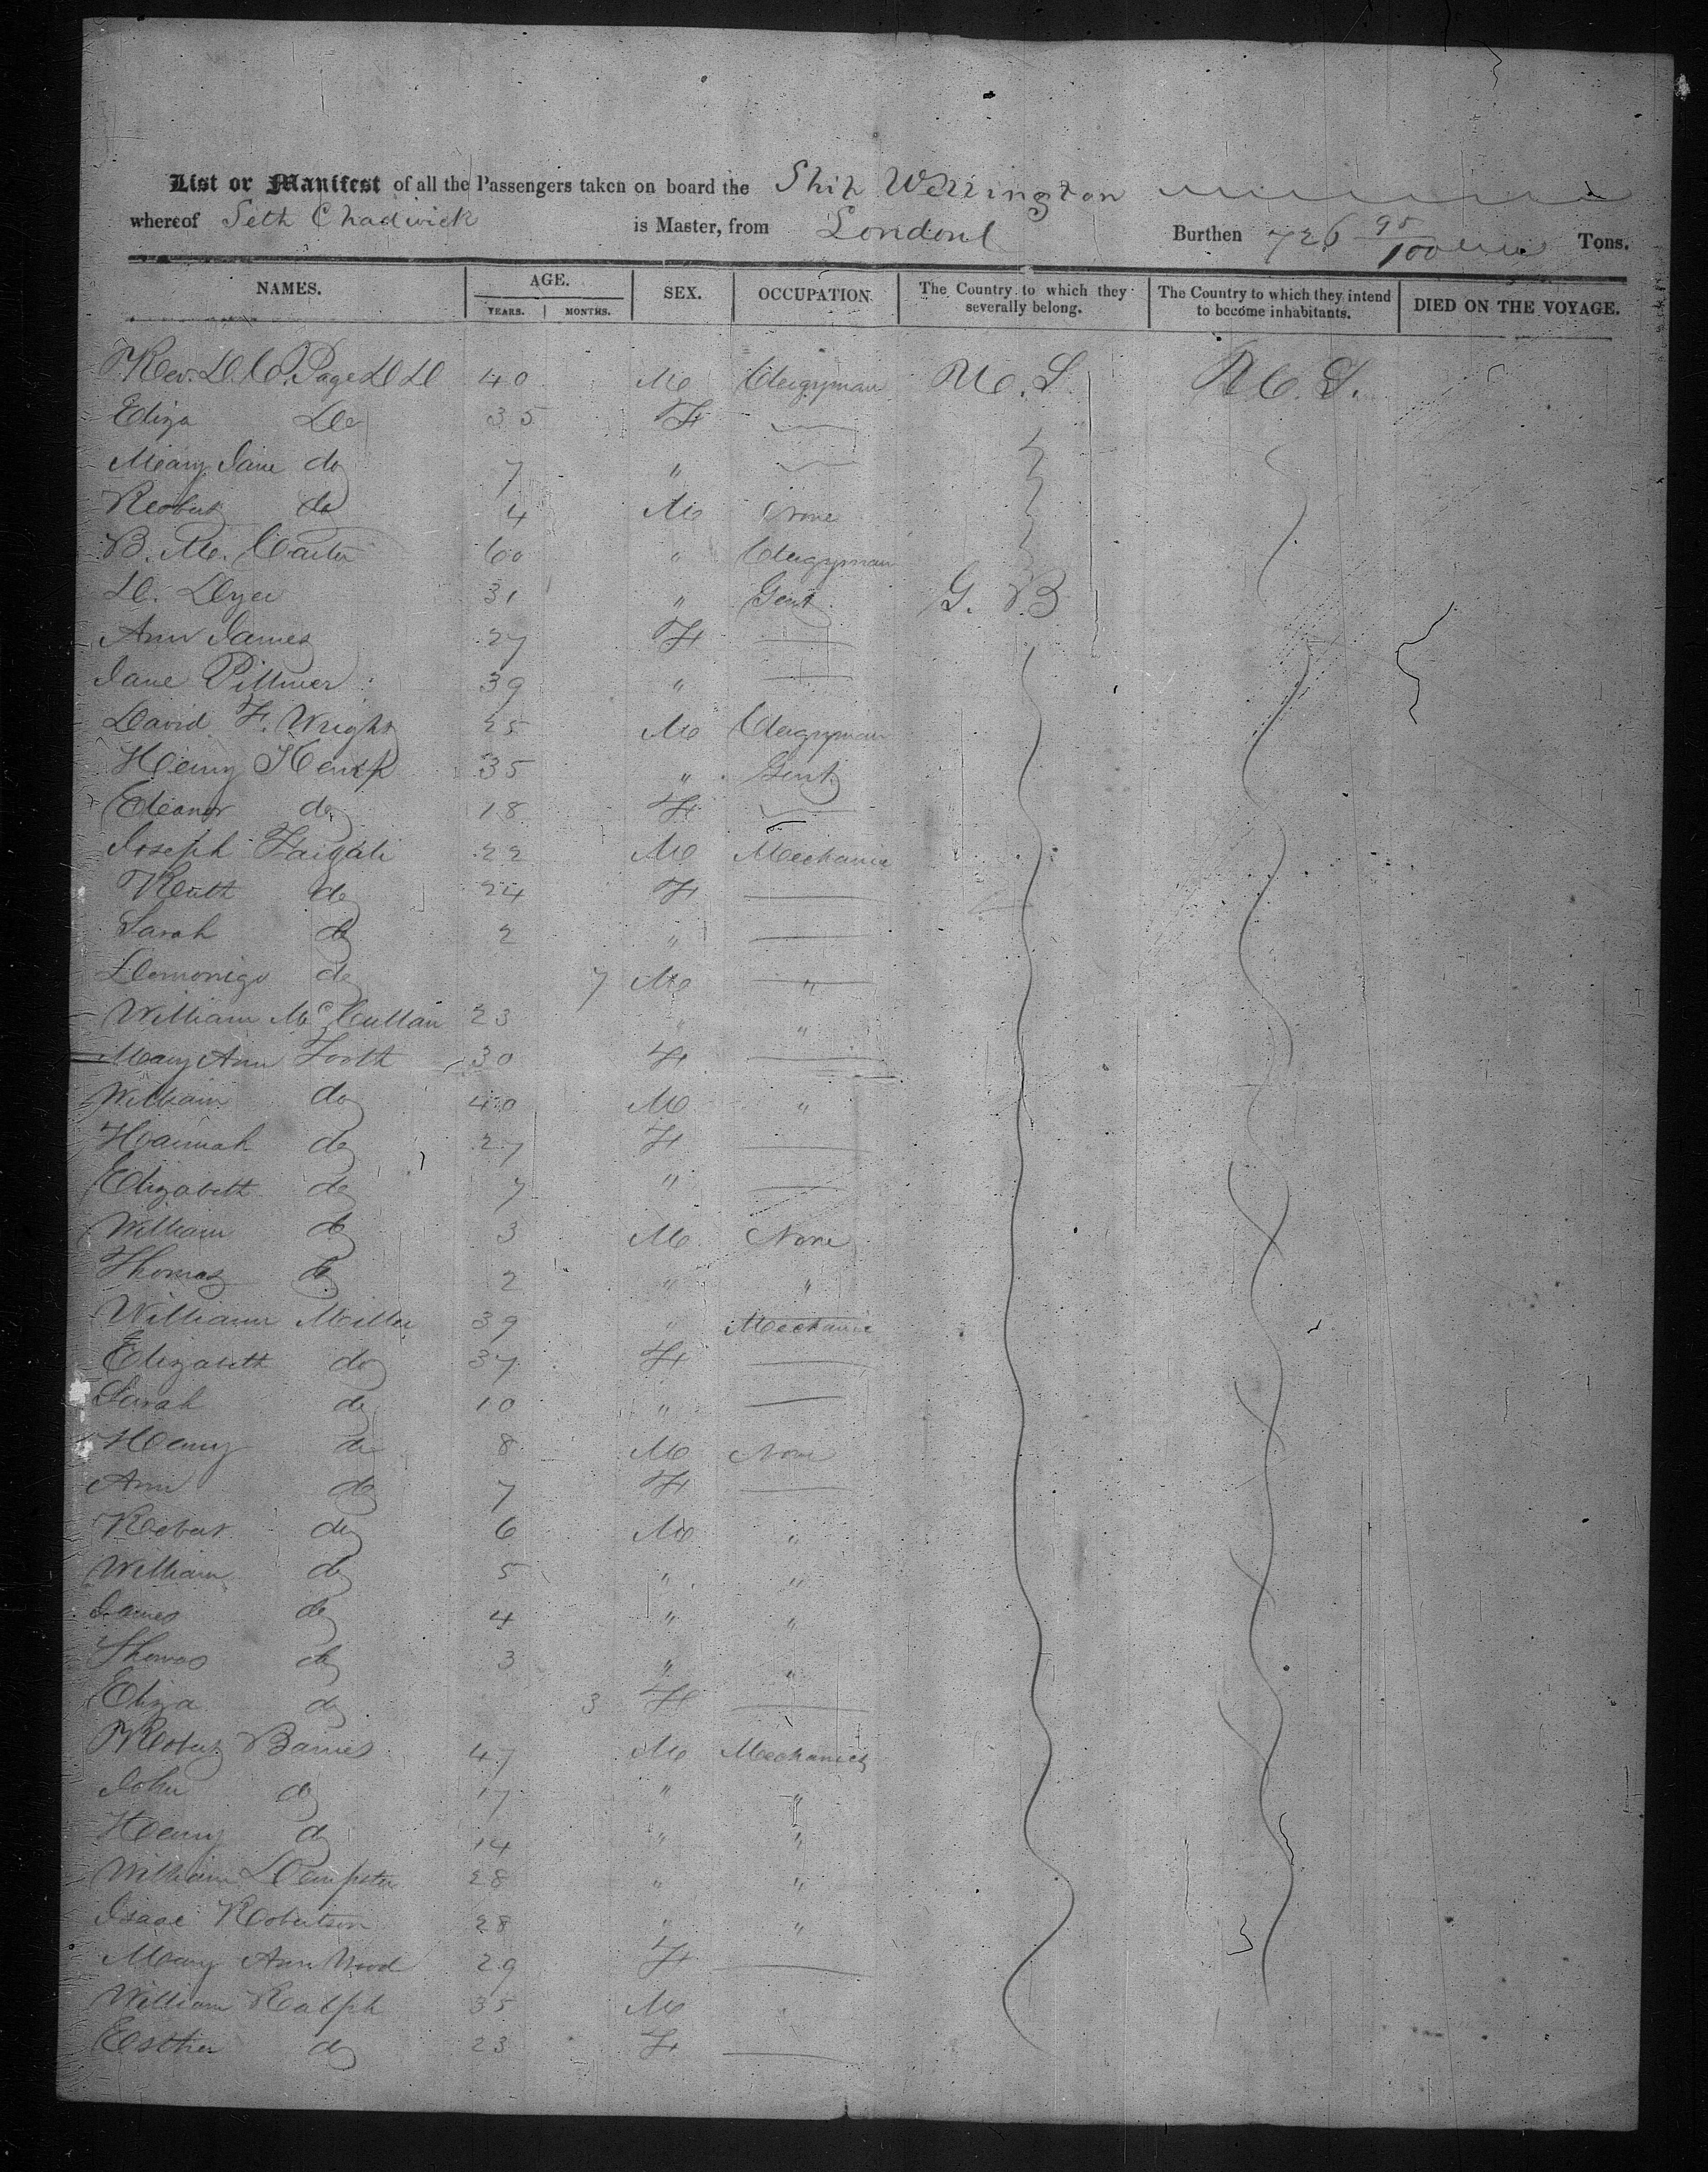 List or Manifest of all the Passengers taken on board the Ship Wellington
whereof Seth Chadwick is Master, from London Burthen 726 95/100 Tons.
NAMES. AGE. SEX. OCCUPATION The Country to which they severally belong. The Country to which they intend to become inhabitants. DIED ON THE VOYAGE.
YEARS. MONTHS.
Rev. D. C. Page DD 40 M Clergyman U.S. U.S.
Eliza Do 35 F
Mary Jane do 7 "
Robert do 4 M None
B. M. Carter 60 " Clergyman
D. Dyer 31 " Gent G. B
Ann James 27 F
Jane Pittmer 39 "
David F. Wright 25 M Clergyman
Henry Kemp 35 " Gent
Eleanor do 18 F
Joseph 22 M Mechanic
Ruth do 24 F
Sarah do 2 "
do 7 M "
William McCullan 23 " "
Mary Ann Forth 30 F
William do 40 M "
Hannah do 27 F
Elizabeth do 7 "
William do 3 M None
Thomas do 2 " "
William Miller 39 " Mechanic
Elizabeth do 37 F
Sarah do 10 "
Henry do 8 M None
Ann do 7 F
Robert do 6 M "
William do 5 " "
James do 4 " "
Thomas do 3 " "
Eliza do 3 F
Robert Barnes 47 M Mechanics
John do 17 " "
Henry do 14 " "
William Dempster 28 " "
Isaac Robertson 28 " "
Mary Ann Wood 29 F
William Ralph 35 M "
Esther do 23 F